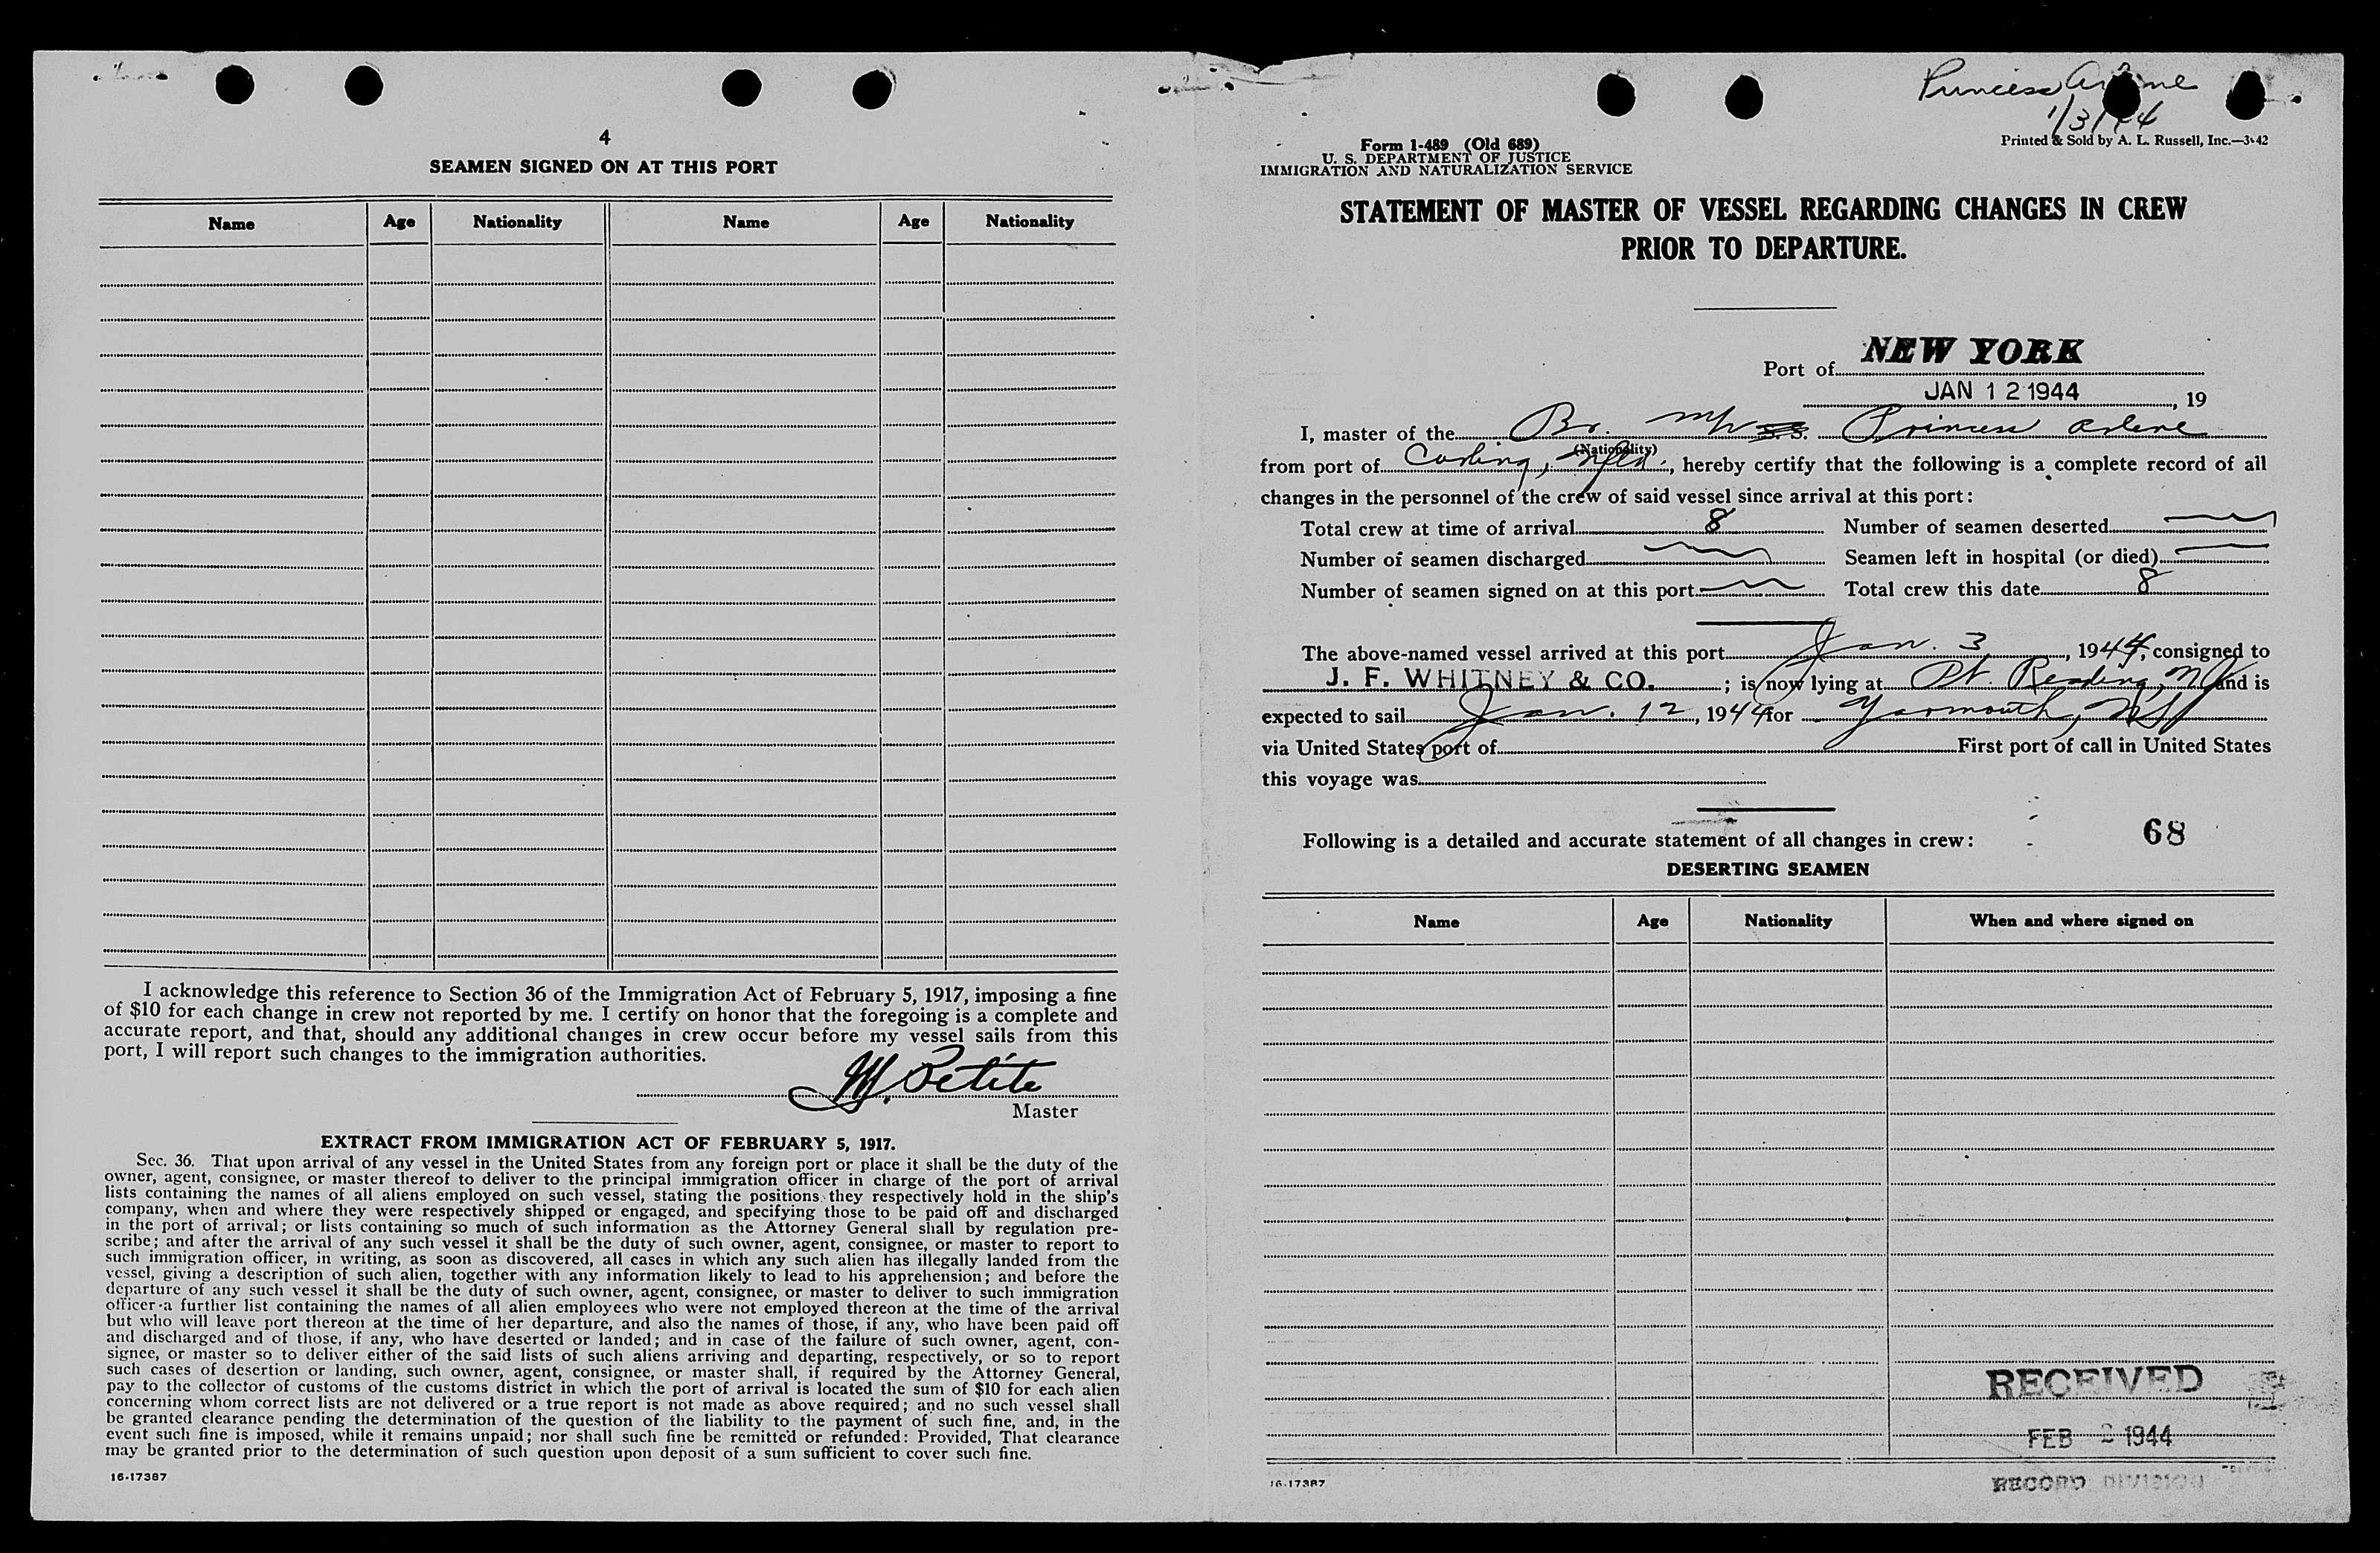 4
SEAMEN SIGNED ON AT THIS PORT
Name Age Nationality Name Age Nationality
I acknowledge this reference to Section 36 of the Immigration Act of February 5, 1917, imposing a fine
of $10 for each change in crew not reported by me. I certify on honor that the foregoing is a complete and
accurate report, and that, should any additional changes in crew occur before my vessel sails from this
port, I will report such changes to the immigration authorities.
M. Petite
Master
EXTRACT FROM IMMIGRATION ACT OF FEBRUARY 5, 1917.
Sec. 36. That upon arrival of any vessel in the United States from any foreign port or place it shall be the duty of the
owner, agent, consignee, or master thereof to deliver to the principal immigration officer in charge of the port of arrival
lists containing the names of all aliens employed on such vessel, stating the positions they respectively hold in the ship's
company, when and where they were respectively shipped or engaged, and specifying those to be paid off and discharged
in the port of arrival; or lists containing so much of such information as the Attorney General shall by regulation pre-
scribe; and after the arrival of any such vessel it shall be the duty of such owner, agent, consignee, or master to report to
such immigration officer, in writing, as soon as discovered, all cases in which any such alien has illegally landed from the
vessel, giving a description of such alien, together with any information likely to lead to his apprehension; and before the
departure of any such vessel it shall be the duty of such owner, agent, consignee, or master to deliver to such immigration
officer a further list containing the names of all alien employees who were not employed thereon at the time of the arrival
but who will leave port thereon at the time of her departure, and also the names of those, if any, who have been paid off
and discharged and of those, if any, who have deserted or landed; and in case of the failure of such owner, agent, con-
signee, or master so to deliver either of the said lists of such aliens arriving and departing, respectively, or so to report
such cases of desertion or landing, such owner, agent, consignee, or master shall, if required by the Attorney General,
pay to the collector of customs of the customs district in which the port of arrival is located the sum of $10 for each alien
concerning whom correct lists are not delivered or a true report is not made as above required; and no such vessel shall
be granted clearance pending the determination of the question of the liability to the payment of such fine, and, in the
event such fine is imposed, while it remains unpaid; nor shall such fine be remitted or refunded: Provided, That clearance
may be granted prior to the determination of such question upon deposit of a sum sufficient to cover such fine.
16-17387
Princess Arlene
1/3/44
Form 1-489 (Old 689)
U. S. DEPARTMENT OF JUSTICE
IMMIGRATION AND NATURALIZATION SERVICE
Printed & Sold by A. L. Russell, Inc.—3-42
STATEMENT OF MASTER OF VESSEL REGARDING CHANGES IN CREW
PRIOR TO DEPARTURE.
Port of NEW YORK
JAN 12 1944, 19
I, master of the Br. M/V S.S. Princess Arlene
(Nationality)
from port of Curling, Nfld., hereby certify that the following is a complete record of all
changes in the personnel of the crew of said vessel since arrival at this port:
Total crew at time of arrival 8 Number of seamen deserted
Number of seamen discharged Seamen left in hospital (or died)
Number of seamen signed on at this port Total crew this date 8
The above-named vessel arrived at this port Jan. 3, 1944, consigned to
J. F. WHITNEY & CO. ; is now lying at Pt. Reading, NJ and is
expected to sail Jan. 12, 1944 for Yarmouth, NS
via United States port of First port of call in United States
this voyage was
Following is a detailed and accurate statement of all changes in crew: 68
DESERTING SEAMEN
Name Age Nationality When and where signed on
RECEIVED
FEB 2 1944
RECORD DIVISION
16-17387